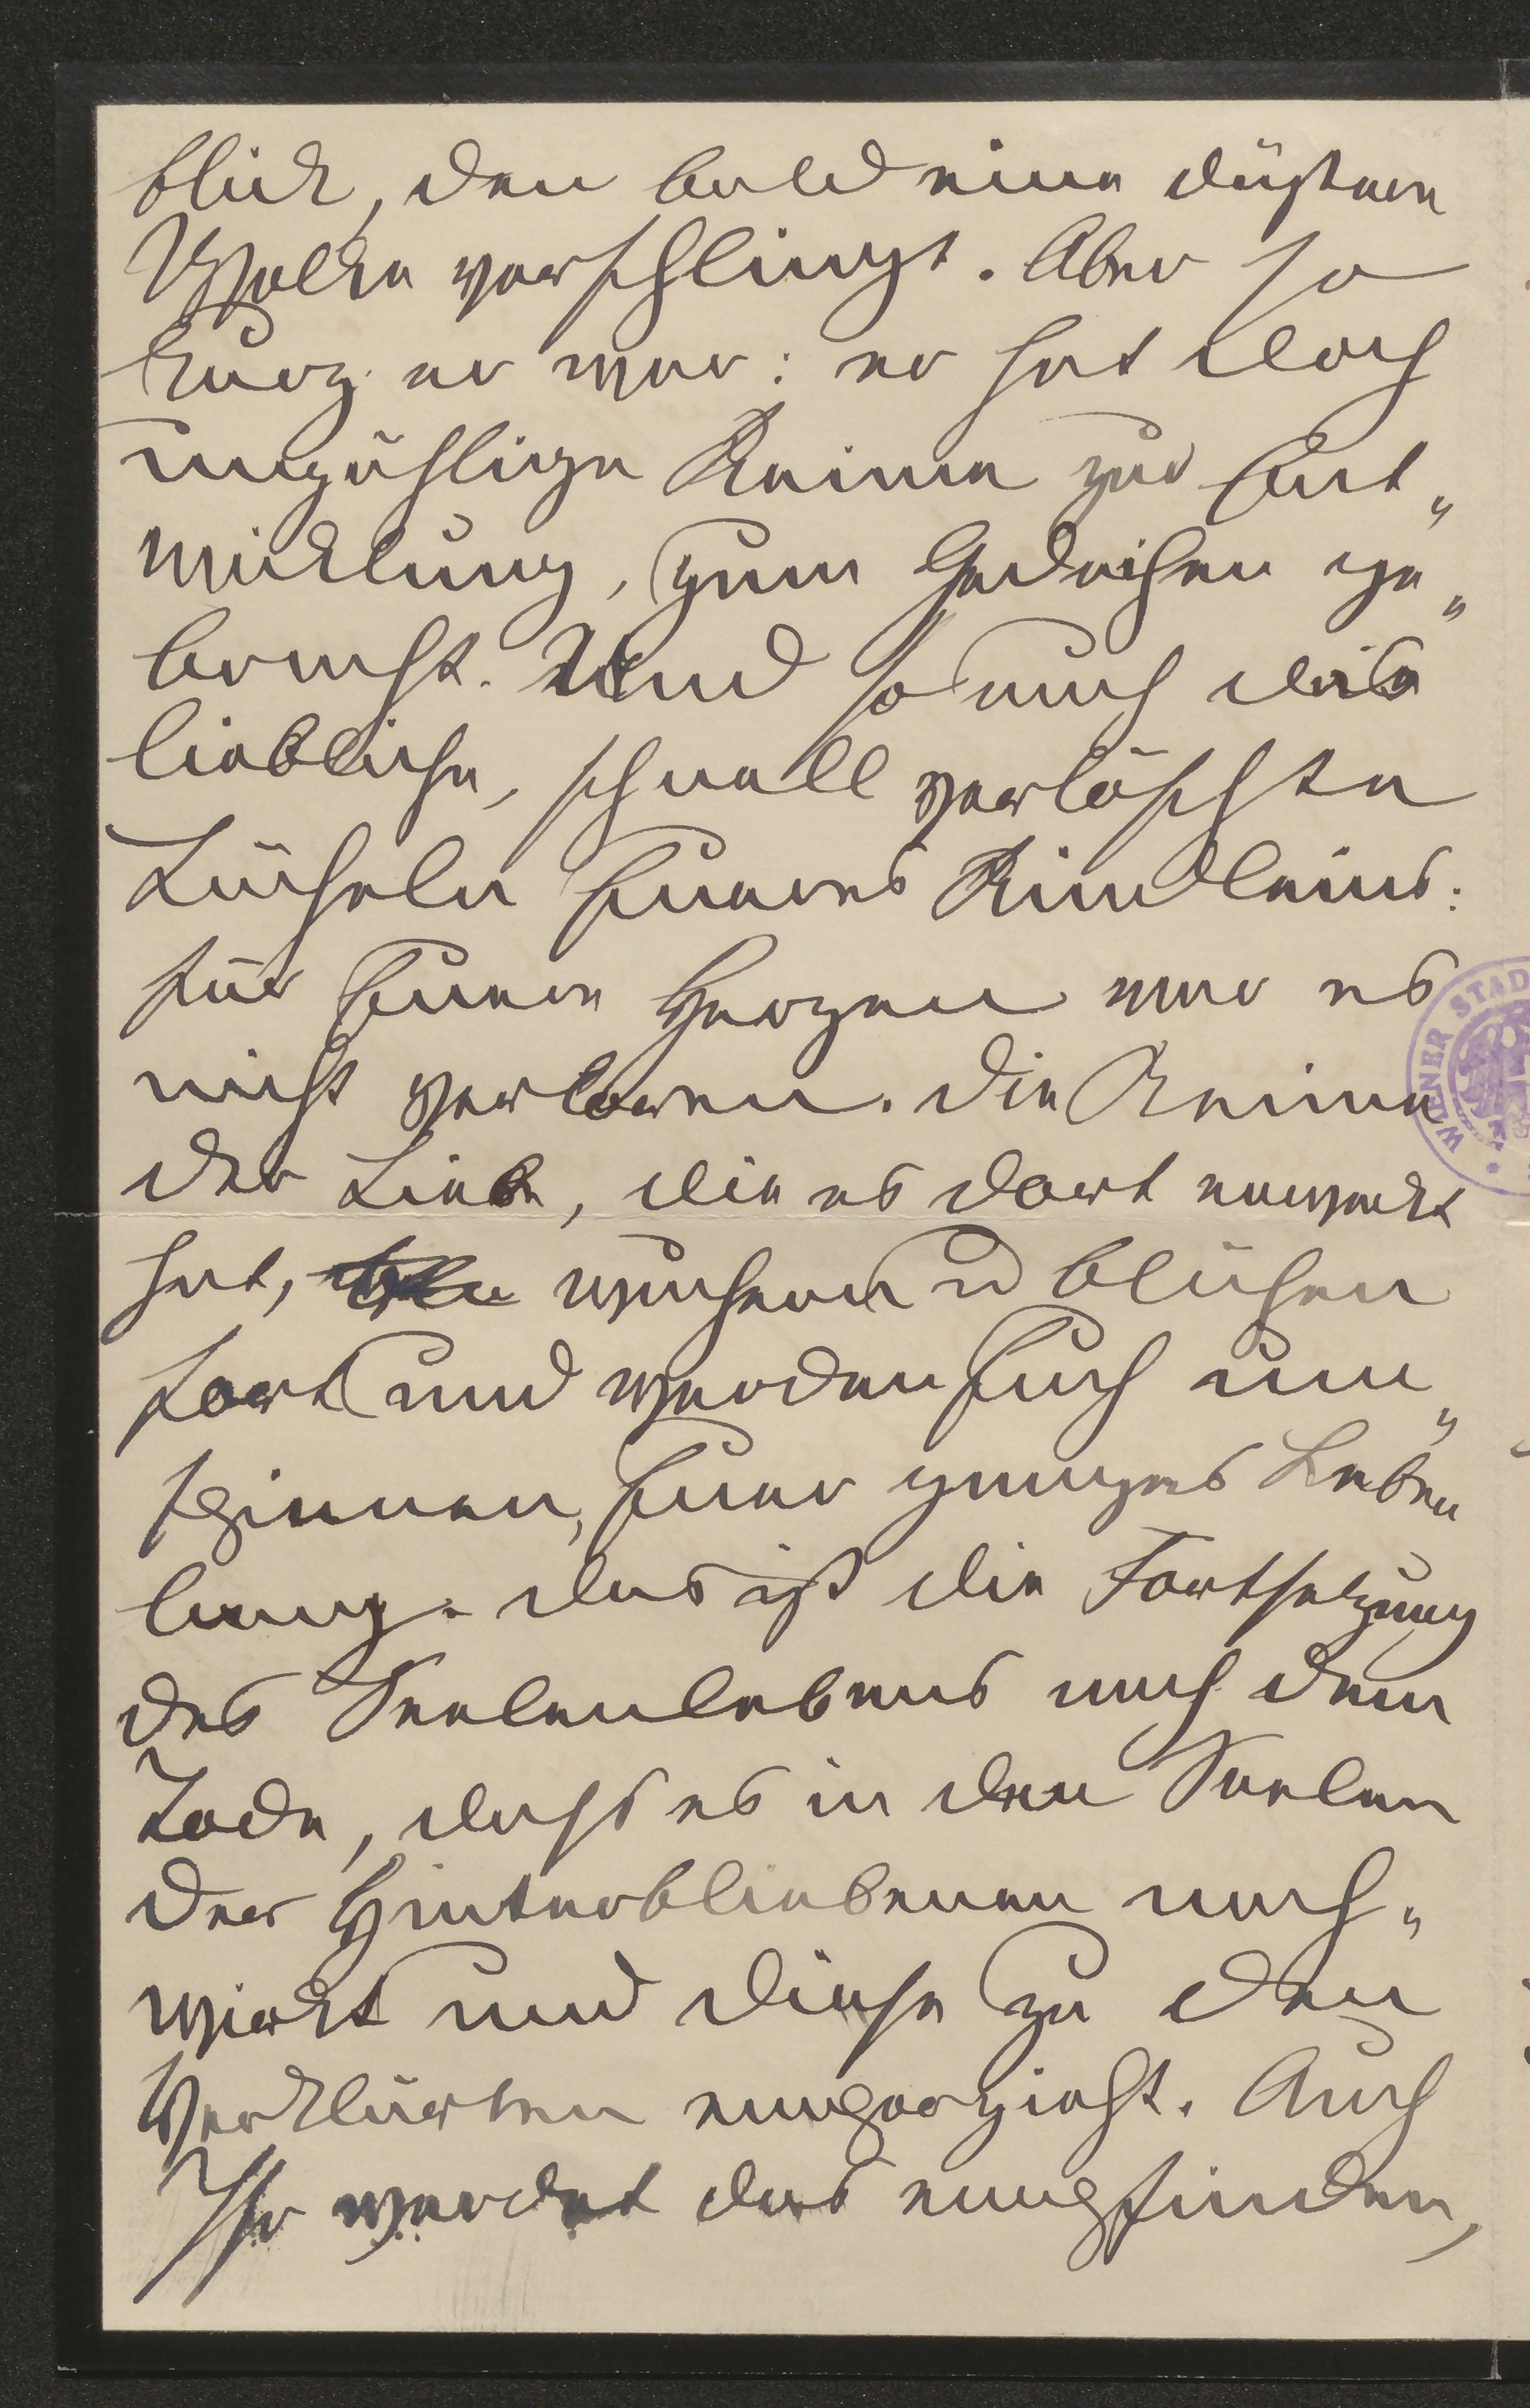 blick, den bald eine düstere
Wolke verschlingt. Aber so
kurz er war: er hat doch
unzählige Keime zur Ent„
wicklung, zum Gedeihen ge„
bracht. Und so auch das
liebliche, schnell verlöschte
Lächeln Eueres Kindleins:
für Euere Herzen war es
nicht verloren. Die Keime
der Liebe, die es dort erweckt
hat, wuchern u blühen
fort und werden Euch um„
spinnen, Euer ganzes Leben
lang. Das ist die Fortsetzung
des Seelenlebens nach dem
Tode, dass es in den Seelen
der Hinterbliebenen nach„
wirkt und diese zu den
Verklärten emporzieht. Auch
Ihr werdet das empfinden,
WIENER STAD